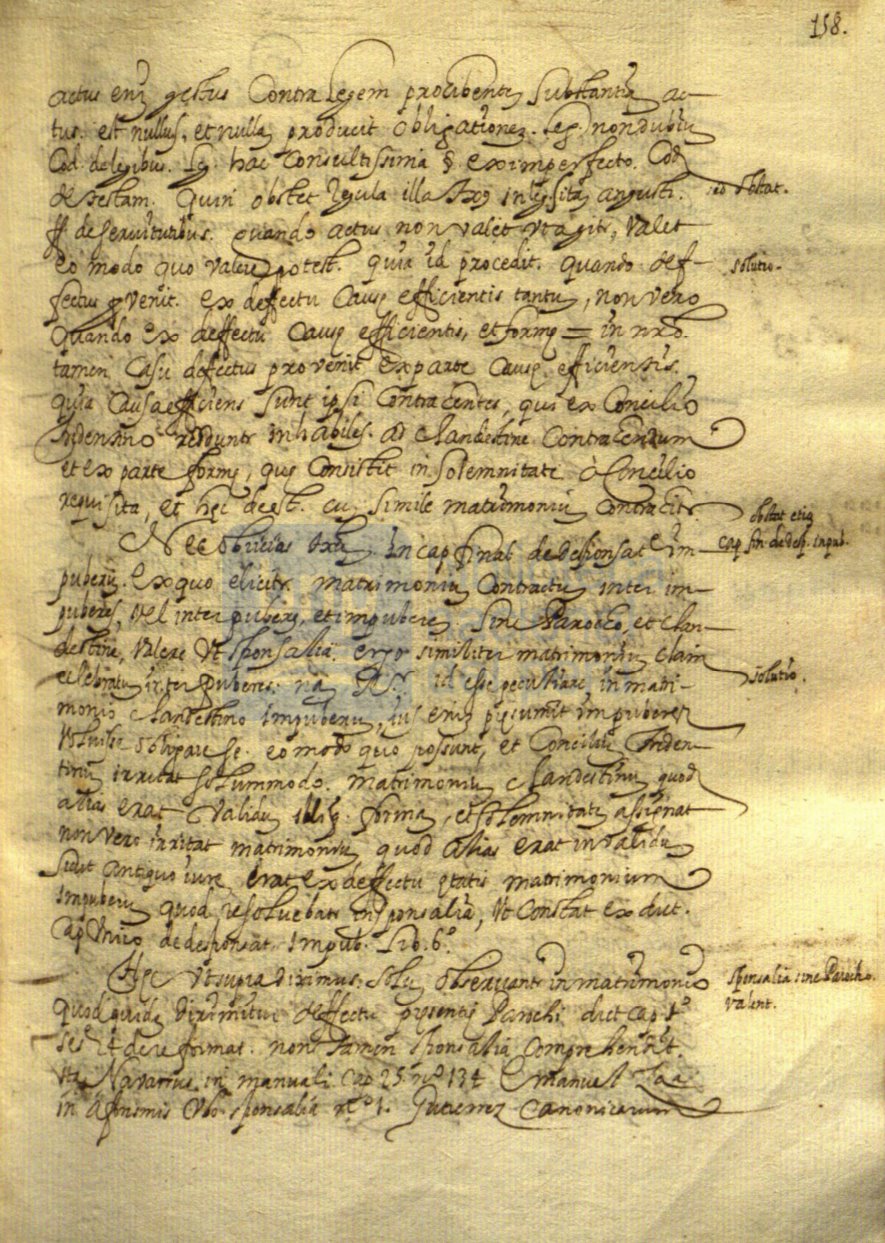 158.
actus enĩ gestus Contra Legem prohibentẽ substantiã ac-
tus. est nullus, et nullã producit obligationem. Leg. non dubiũ
Cod. de legibus. Lg. hac Consultissima § ex imperfecto. Cod.
de testam. Quin obstet regula illa
ff de seruitutibus. quando actus non valet vt agitr, valet
eo modo quo valere potest. quia id procedit. quando def-
fectus ꝓvenit. ex deffectu Causę efficientis tantũ, non vero
Quando ex deffectũ Causę efficientis, et formę = in nrõ.
tamen Casu defectus provenit ex parte Causę efficientis.
Quia Causa efficiens sunt ipsi Contrahentes, qui ex Concilio
Tridentino redduntr inhabiles. ad clandestine Contrahendum
et ex parte formę, quę Consistit in solemnitate à Concilio
requisita, et hęc deest. cũ simile matrimoniũ Contrahitr.
Nec obijcias txtũ in cap final de desponsat e im-
puberũ. Ex quo elicitr matrimoniũ Contractũ inter im-
puberes, vel inter puberẽ, et impuberẽ. sine Parocho, et clan-
destine, valere vt sponsalia. ergo similiter matrimoniũ clam
celebratũ inter puberes. nã Rr. id esse peculiare in matri-
monio clandestino impuberũ, ius enĩ pręsumit impuberes
voluisse obligare se. eo modo quo possunt, et Conciliũ Triden-
tinũ irritat solummodo. matrimoniũ clandestinũ quod
alias erat validũ illiq. formã, et solemnitatẽ assignat
non vero irritat matrimoniũ quod alias erat invalidũ
sicut antiquo iure erat ex deffectu ętatis matrimonium
impuberũ quod resoluebatr in sponsalia, vt Constat ex dict.
Cap Vnico de desponsat. impub. Lib. 6º.
Hęc vt supra diximus. solũ observantr in matrimonio
quod quidẽ dirimitur deffectu pręsentię Parochi dict cap 1º
ses de reformat. non tamen sponsalia comprehendit.
ita Navarrus in manuali cap 25 nº 134 Emanuel Saa
in Aforismis Vbo. sponsalia nº 1. Gutierrez Canonicarum
no obstat.
solutio.
obstat etiã
cap fin de desp. impub.
solutio.
sponsalia sine Parocho.
valent.